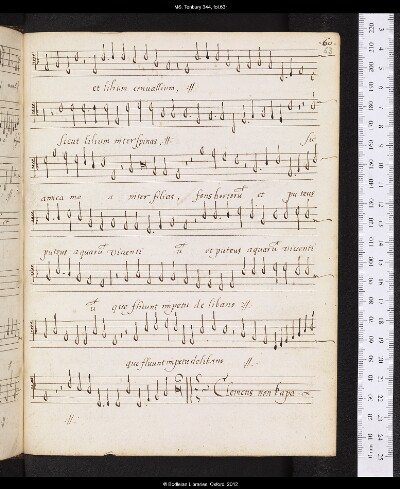 MS. Tenbury 344, fol.63r
60
63
et lilium convallium, ij.
Sicut lilium inter spinas, ij. sic
amica mea inter filias, fons hortorū et puteus
puteus aquarū viventiū et puteus aquarū viventi
ū que fluunt impetu de libano ij.
que fluunt impetu de libano ij.
Clemens non Papa
ij.
© Bodleian Libraries, Oxford, 2012